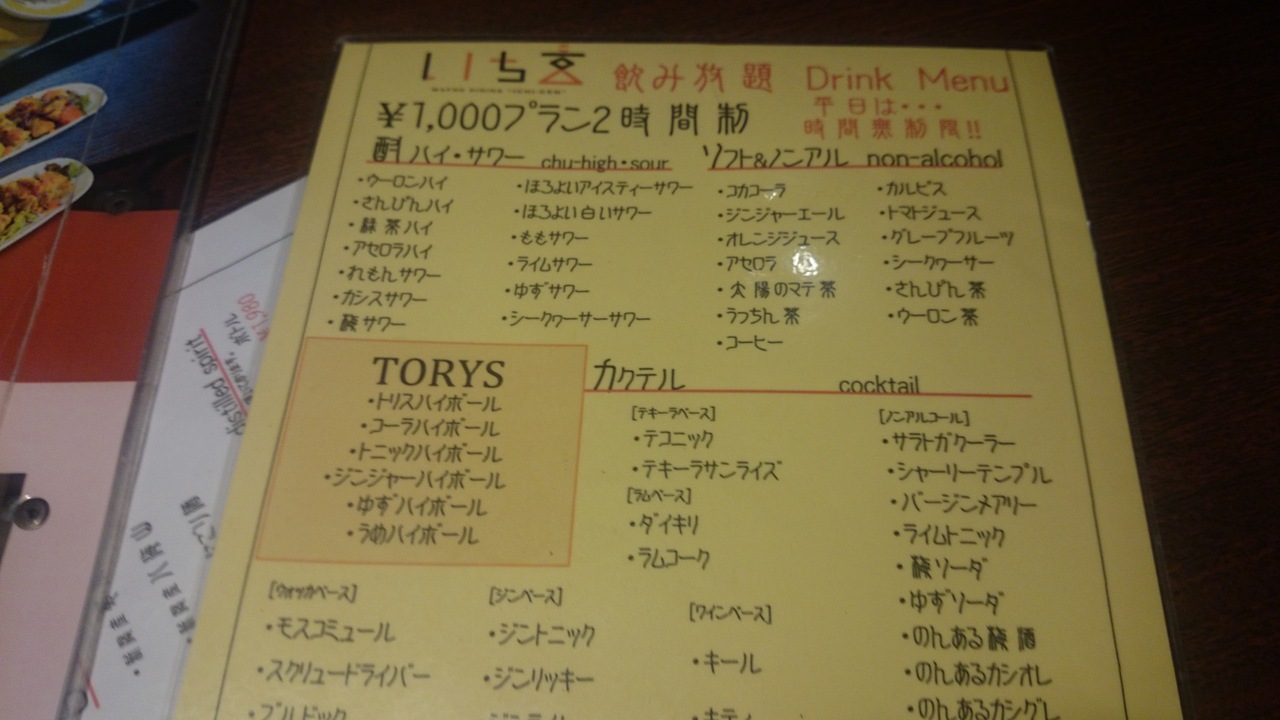 いち玄
飲み放題 Drink Menu
¥1,000プラン2時間制
平日は・・・
時間無制限!!
酎ハイ・サワー chu-high・sour
・ウーロンハイ
・さんぴんハイ
・緑茶ハイ
・アセロラハイ
・れもんサワー
・カシスサワー
・酸サワー
・ほろよいアイスティーサワー
・ほろよい白いサワー
・ももサワー
・ライムサワー
・ゆずサワー
・シークヮーサーサワー
ソフト&ノンアル non-alcohol
・コカコーラ
・ジンジャーエール
・オレンジジュース
・アセロラ
・太陽のマテ茶
・うっちん茶
・コーヒー
・カルピス
・トマトジュース
・グレープフルーツ
・シークヮーサー
・さんぴん茶
・ウーロン茶
TORYS
・トリスハイボール
・コーラハイボール
・トニックハイボール
・ジンジャーハイボール
・ゆずハイボール
・うめハイボール
カクテル cocktail
[テキーラベース]
・テコニック
・テキーラサンライズ
[ラムベース]
・ダイキリ
・ラムコーク
[ノンアルコール]
・サラトガクーラー
・シャーリーテンプル
・バージンメアリー
・ライムトニック
・酸ソーダ
・ゆずソーダ
・のんある酸酒
・のんあるカシオレ
・のんあるカシグレ
[ウォッカベース]
・モスコミュール
・スクリュードライバー
・ブルドック
[ジンベース]
・ジントニック
・ジンリッキー
[ワインベース]
・キール
・キティ
¥1,980
ボトル
distilled spirit